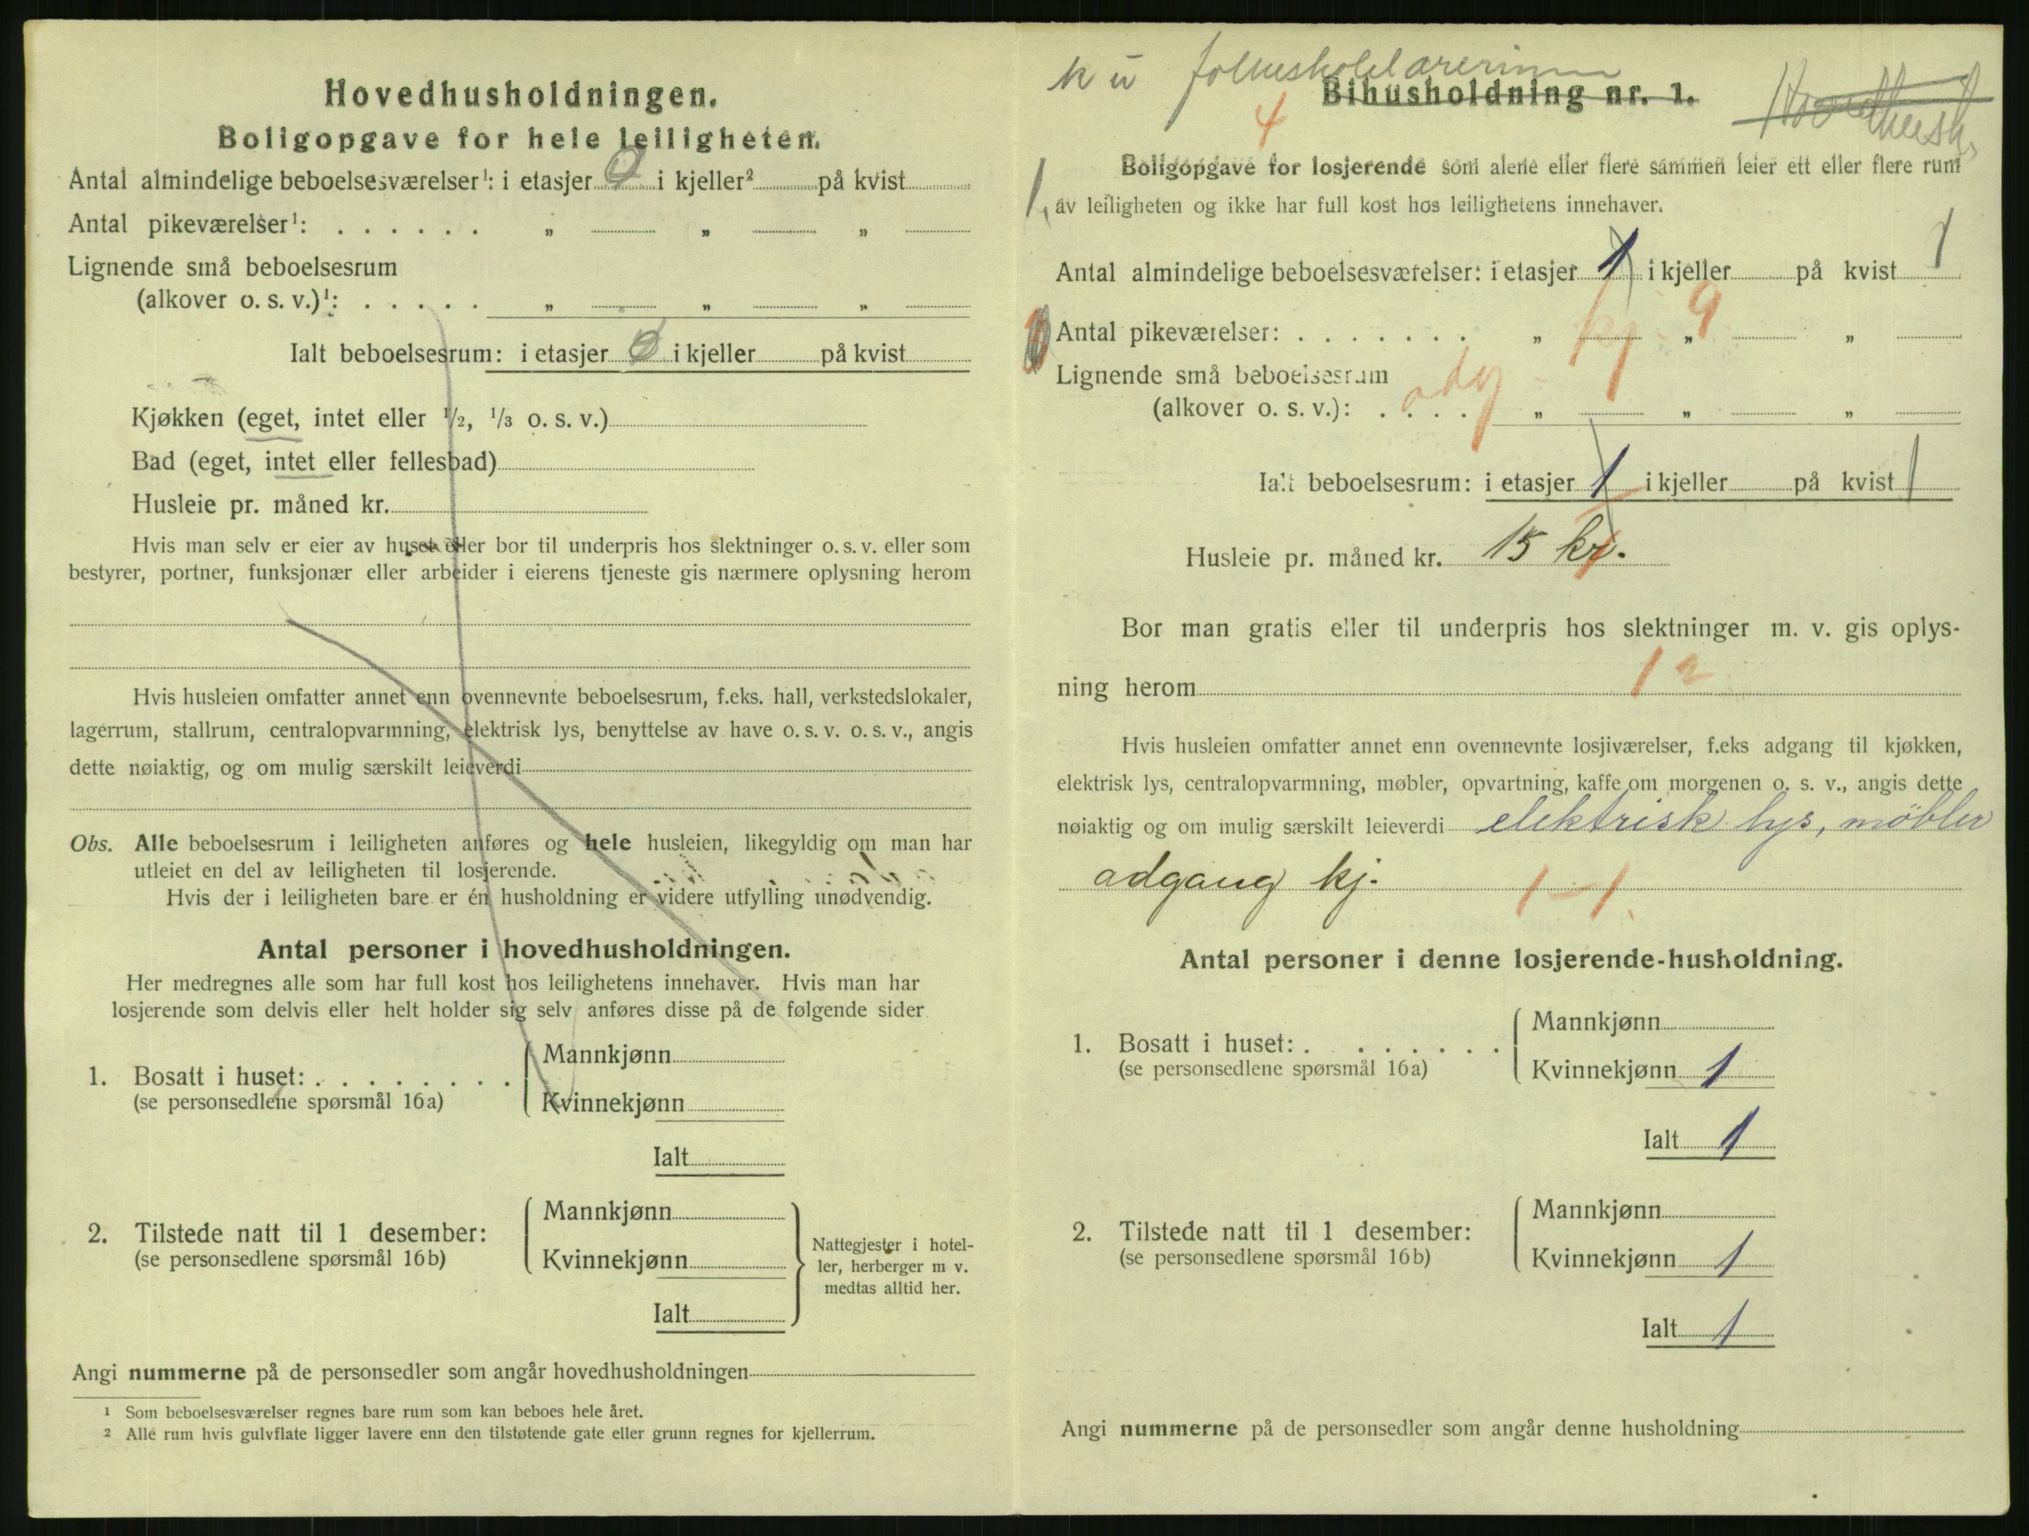 Hovedhusholdningen.
Boligopgave for hele leiligheten.
Antal almindelige beboelsesværelser¹: i etasjer 0 i kjeller² på kvist
Antal pikeværelser¹: . . . . . . „ „ „
Lignende små beboelsesrum
(alkover o. s. v.)¹: . . . . . „ „ „
Ialt beboelsesrum: i etasjer 0 i kjeller på kvist
Kjøkken (eget, intet eller ½, ⅓ o. s. v.)
Bad (eget, intet eller fellesbad)
Husleie pr. måned kr.
Hvis man selv er eier av huset eller bor til underpris hos slektninger o. s. v. eller som
bestyrer, portner, funksjonær eller arbeider i eierens tjeneste gis nærmere oplysning herom
Hvis husleien omfatter annet enn ovennevnte beboelsesrum, f.eks. hall, verkstedslokaler,
lagerrum, stallrum, centralopvarmning, elektrisk lys, benyttelse av have o. s. v. o. s. v., angis
dette nøiaktig, og om mulig særskilt leieverdi
Obs. Alle beboelsesrum i leiligheten anføres og hele husleien, likegyldig om man har
utleiet en del av leiligheten til losjerende.
Hvis der i leiligheten bare er én husholdning er videre utfylling unødvendig.
Antal personer i hovedhusholdningen.
Her medregnes alle som har full kost hos leilighetens innehaver. Hvis man har
losjerende som delvis eller helt holder sig selv anføres disse på de følgende sider
1. Bosatt i huset: . . . . . . . . Mannkjønn
(se personsedlene spørsmål 16a) Kvinnekjønn
Ialt
2. Tilstede natt til 1 desember: Mannkjønn
(se personsedlene spørsmål 16b) Kvinnekjønn
Ialt
Nattegjester i hotel-
ler, herberger m v.
medtas alltid her.
Angi nummerne på de personsedler som angår hovedhusholdningen
¹ Som beboelsesværelser regnes bare rum som kan beboes hele året.
² Alle rum hvis gulvflate ligger lavere enn den tilstøtende gate eller grunn regnes for kjellerrum.
k u folkeskolelærerinne
Bihusholdning nr. 1. Hovedhush.
4
Boligopgave for losjerende som alene eller flere sammen leier ett eller flere rum
1, av leiligheten og ikke har full kost hos leilighetens innehaver.
Antal almindelige beboelsesværelser: i etasjer 1 i kjeller på kvist 1
Antal pikeværelser: . . . . . . . „ „ „
kj. 9
Lignende små beboelsesrum
adg
(alkover o. s. v.): . . . . „ „ „
Ialt beboelsesrum: i etasjer 1 i kjeller på kvist 1
Husleie pr. måned kr. 15 kr.
Bor man gratis eller til underpris hos slektninger m. v. gis oplys-
ning herom 12
Hvis husleien omfatter annet enn ovennevnte losjiværelser, f.eks adgang til kjøkken,
elektrisk lys, centralopvarmning, møbler, opvartning, kaffe om morgenen o. s. v., angis dette
nøiaktig og om mulig særskilt leieverdi elektrisk lys, møbler
adgang kj. 1-1.
Antal personer i denne losjerende-husholdning.
1. Bosatt i huset: . . . . . . . Mannkjønn
(se personsedlene spørsmål 16a) Kvinnekjønn 1
Ialt 1
2. Tilstede natt til 1 desember: Mannkjønn
(se personsedlene spørsmål 16b) Kvinnekjønn 1
Ialt 1
Angi nummerne på de personsedler som angår denne husholdning